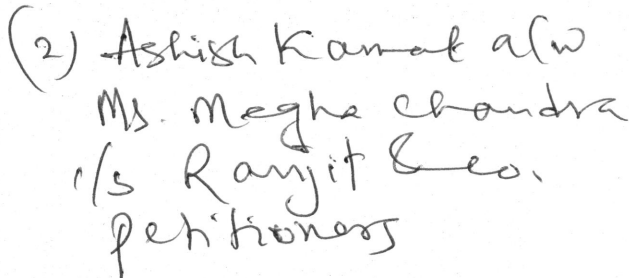 (2) Ashish Kamat a/w
Ms. Megha Chandra
i/s Ranjit & Co.
petitioners